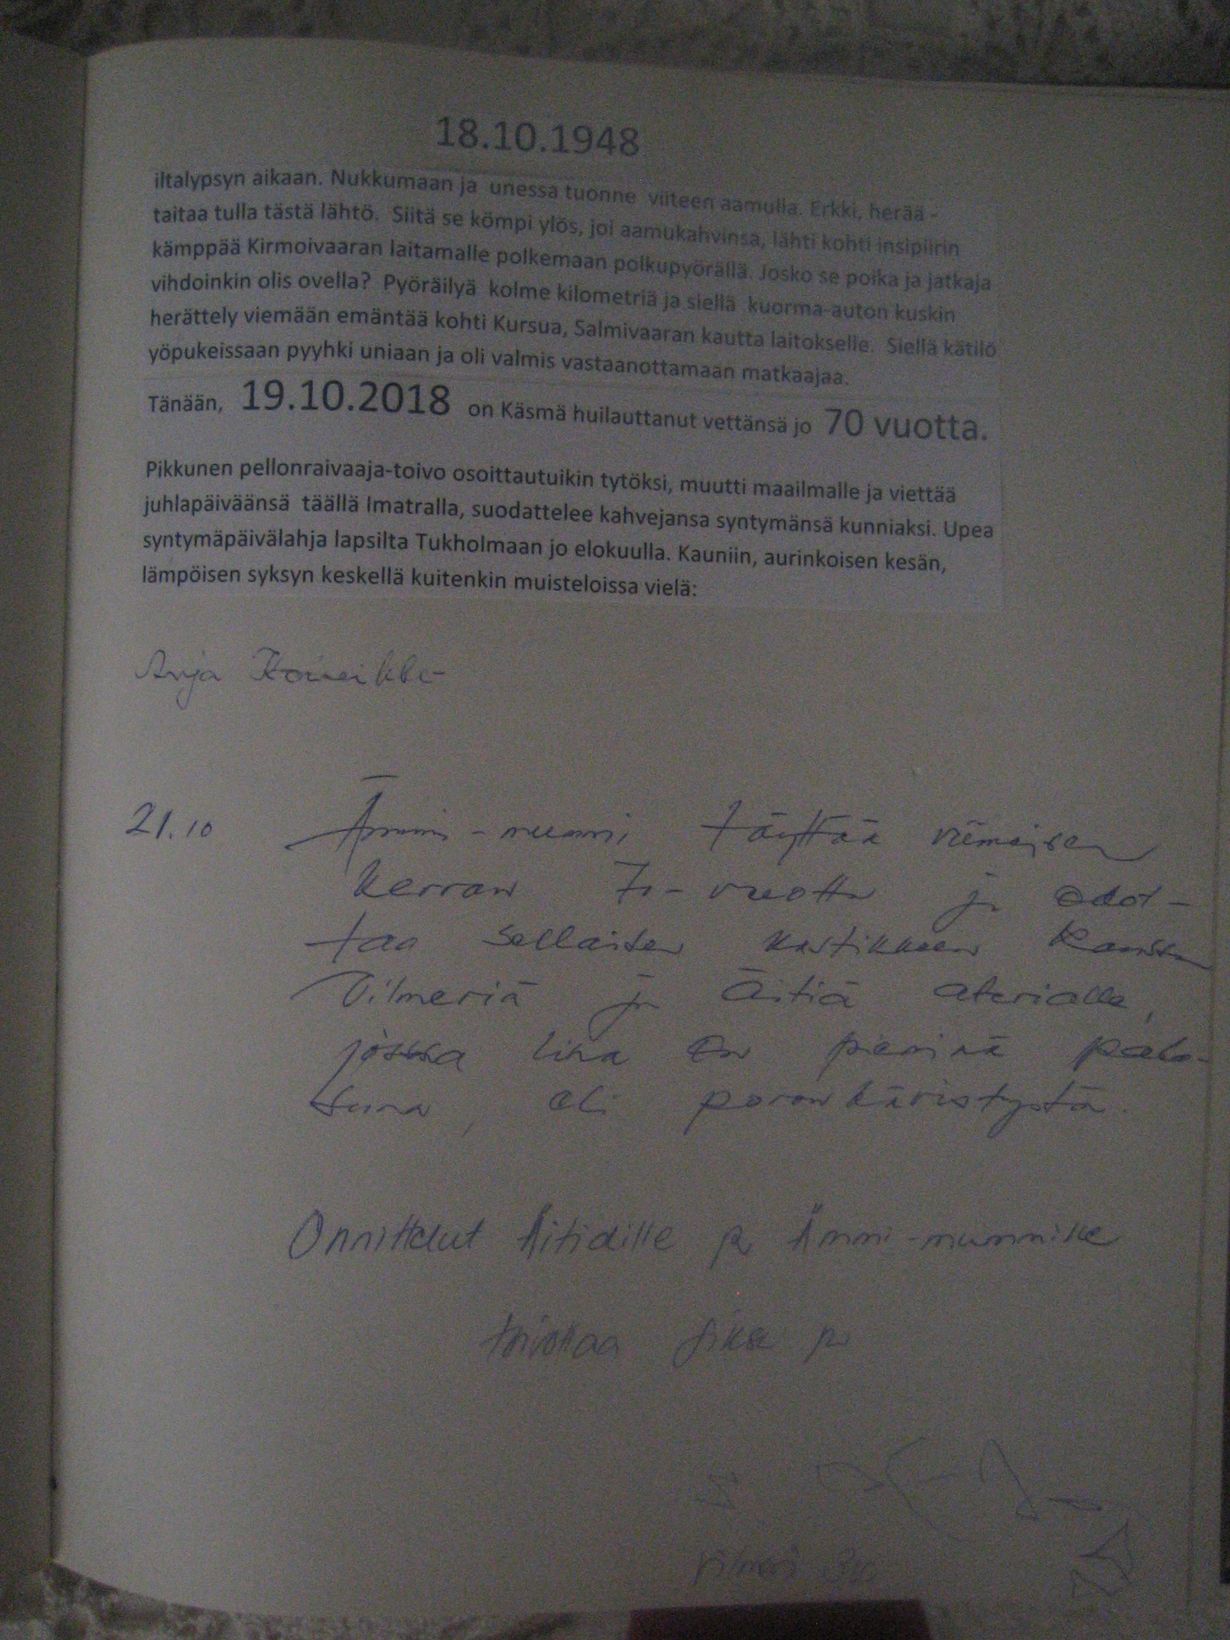 18.10.1948
iltalypsyn aikaan. Nukkumaan ja unessa tuonne viiteen aamulla. Erkki, herää -
taitaa tulla tästä lähtö. Siitä se kömpi ylös, joi aamukahvinsa, lähti kohti insipiirin
kämppää Kirmoivaaran laitamalle polkemaan polkupyörällä. Josko se poika ja jatkaja
vihdoinkin olis ovella? Pyöräilyä kolme kilometriä ja siellä kuorma-auton kuskin
herättely viemään emäntää kohti Kursua, Salmivaaran kautta laitokselle. Siellä kätilö
yöpukeissaan pyyhki uniaan ja oli valmis vastaanottamaan matkaajaa.
Tänään, 19.10.2018 on Käsmä huilauttanut vettänsä jo 70 vuotta.
Pikkunen pellonraivaaja-toivo osoittautuikin tytöksi, muutti maailmalle ja viettää
juhlapäiväänsä täällä Imatralla, suodattelee kahvejansa syntymänsä kunniaksi. Upea
syntymäpäivälahja lapsilta Tukholmaan jo elokuulla. Kauniin, aurinkoisen kesän,
lämpöisen syksyn keskellä kuitenkin muisteloissa vielä:
Arja
21.10 Ämmi-mummi täyttää viimeisen
kerran 70-vuotta ja odot-
taa sellaisen kastikkeen kanssa
Vilmeriä ja Äitiä aterialle,
jossa liha on pieninä palo-
sina, eli poronkäristystä.
Onnittelut Äitidille ja Ämmi-mummille
toivottaa ja
Vilmeri